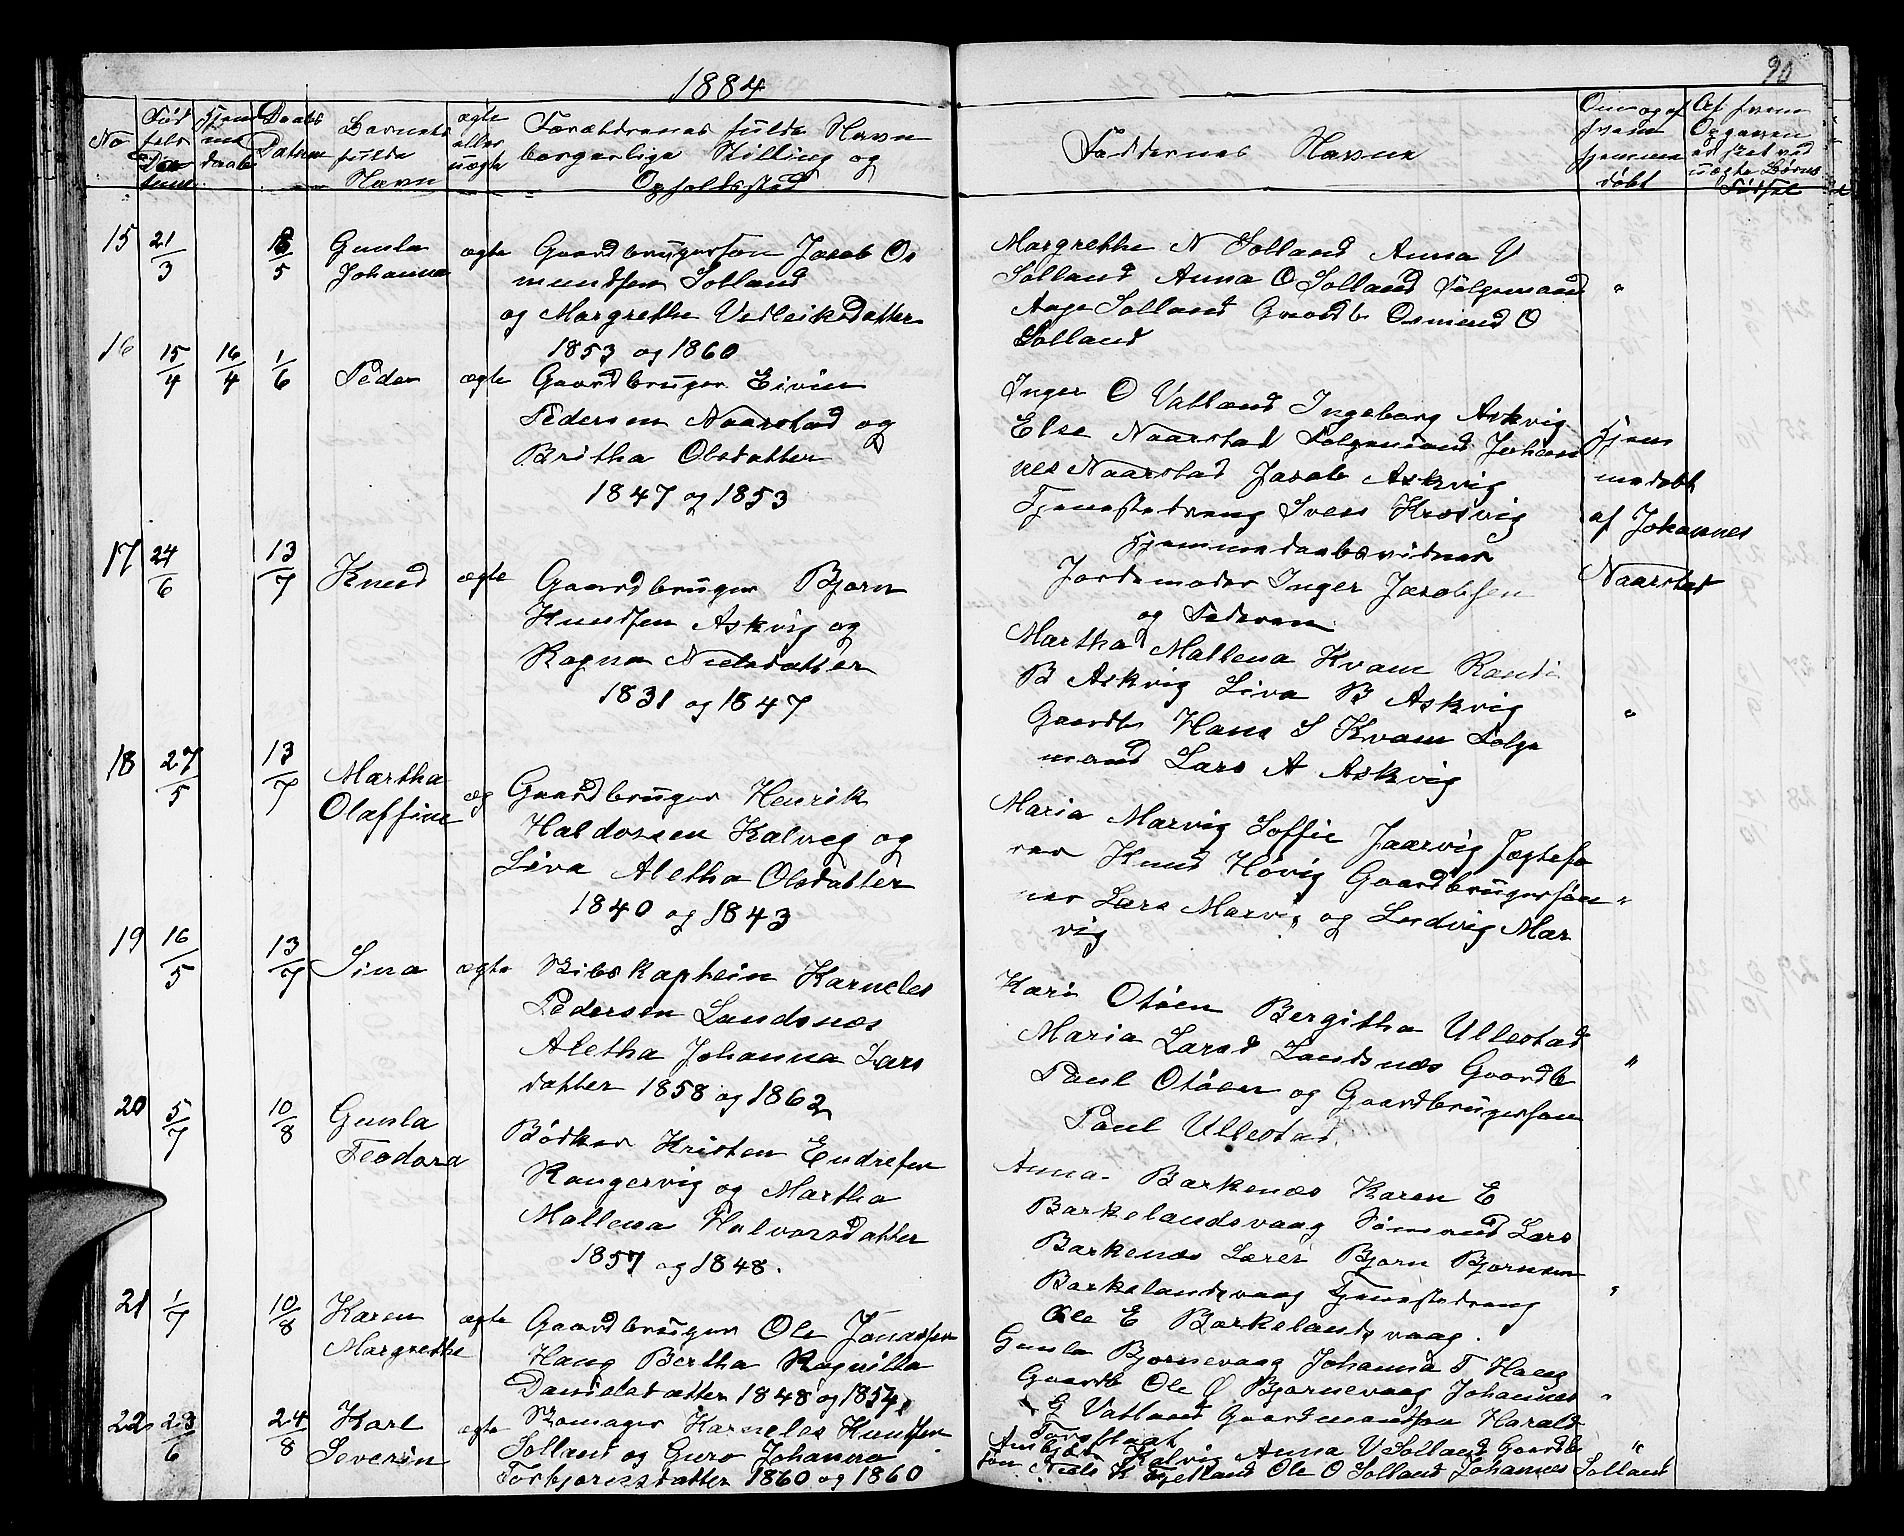 1884
90
No
Fød
sels
Da
tum
Hjem
me
daab
Daabs
Datum
Barnets
fulde
Navn
ægte
eller
uægte
Forældrenes fulde Navn
borgerlige Stilling og
Opholdssted
Faddernes Navne
Om og af
hvem
hjemme
døbt
Af hvem
Opgaven
er sket ved
uægte Børns
Fødsel
15 21/3 5 Gunla ægte Gaardbrugersøn Jacob Os
Johanna mundsen Solland
og Margrethe Vedleiksdatter
1853 og 1860
Margrethe N Solland Anna V
Solland Anna O Solland Følgemand
Aage Solland Gaardb Osmund O "
Solland
16 15/4 16/4 1/6 Peder ægte Gaardbruger Eivin
Pedersen Naarstad og
Britha Olsdatter
1847 og 1853
Inger O Vatland Ingeborg Askvig
Else Naarstad Følgemand Johan
nes Naarstad Jacob Askvig
Tjenestedreng Sven Krosvig
Hjemmedaabsvidner
Jordemoder Inger Jacobsen
og Faderen
Hjem
medøbt
af Johannes
Naarstad
17 24/6 13/7 Knud ægte Gaardbruger Bjørn
Knudsen Askvig og
Ragna Nielsdatter
1831 og 1847
Martha Mallena Kvam Randi
B Askvig Liva B Askvig
Gaardb Hans S Kvam Følge "
mand Lars A Askvig
18 27/5 13/7 Martha æg Gaardbruger Henrik
Olaffine Haldorsen Kalveg og
Liva Aletha Olsdatter
1840 og 1843
Maria Marvig Soffie Jaarvig Jægtefø
rer Knud Høvig Gaardbrugersøn "
ner Lars Marvig og Ludvig Mar
vig
19 16/5 13/7 Sina ægte Skibskaptein Karneles
Pedersen Landsnæs
Aletha Johanna Lars
datter 1858 og 1862
Kari Otøen Bergitha Ullestad
Maria Larsd Landsnæs Gaardb "
Paul Otøen og Gaardbrugersøn
Paul Ullestad.
20 5/7 10/8 Gunla Bødker Kristen Endresen
Teodora Rangervig og Martha
Mallena Halvorsdatter
1857 og 1848.
Anna Barkenæs Karen E
Barkelandsvaag Sømand Lars
Barkenæs Lærer Bjørn Bjørnsen
Barkelandsvaag Tjenestedreng "
Ole E Barkelandsvaag.
21 1/7 10/8 Karen ægte Gaardbruger Ole Jonassen
Margrethe Haug Bertha Ragnilla
Danielsdatter 1848 og 1854
Gunla Bjørnevaag Johanna T Haug
Gaardb Ole Ø Bjørnevaag Johannes "
G Vatland Gaardmandssøn Harald
22 23/6 24/8 Karl ægte Skomager Karneles Knudsen
Severin Solland og Guro Johanna
Torbjørnsdatter 1860 og 1860
Kalvig Anna V Solland Gaardb "
søn Niels K Fjetland Ole O Solland Johannes Solland